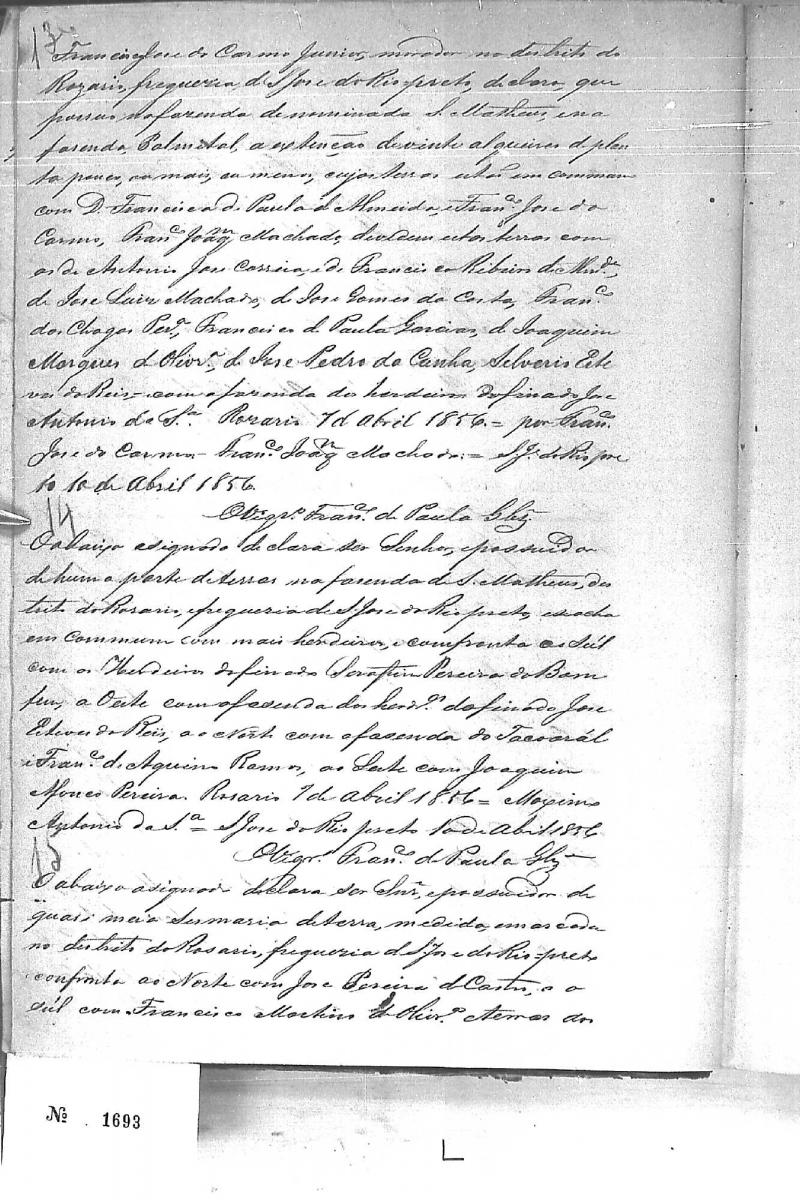 13
Francisco Jose do Carmo Junior, morador no destrito do
Rozario, freguezia de S Jose do Rio preto, declara, que
possue na fazenda denominada S. Matheus, e na
fazenda Palmital, a extenção de vinte alqueires de plan
ta pouco, ou mais, ou menos, cujas terras estão em commum
com D. Francisca de Paula d Almeida, e Franco. Jose do
Carmo, Franco. Joaqm Machado, devedem estas terras com
as de Antonio Jose Correia, e de Francisco Ribeiro de
de Jose Luiz Machado, de Jose Gomes da Costa, Franco.
das Chagas Pera., Francisco de Paula Garcias, de Joaquim
Marques d Olivra., de Jose Pedro da Cunha, Silverio Este
ves do Reis = com a fazenda dos herdeiros do finado Jose
Antonio da Sa. Rozario 7 d Abril 1856. = por Franco.
Jose do Carmo = Franco. Joaqm Machado = S J. do Rio pre
to 10 de Abril 1856.
O Vigro. Franco. de Paula Glz
14
O abaixo asignado declara ser Senhor, e possuidor
de huma parte de terras na fazenda de S. Matheus, des
trito do Rosario, e freguezia de S. Jose do Rio preto, e se acha
em commum com mais herdeiros, e comfronta ao Sul
com os Herdeiros do finado Serafim Pereira do Bom
fim, a Oeste com a fasenda dos herdos. do finado Jose
Esteves do Reis, ao Norte com a fasenda do Tacoaral
e Franco. de Aquino Ramos, ao Leste com Joaquim
Afonço Pereira. Rosario 7 de Abril 1856 = Maximo
Antonio da Sa. = S Jose do Rio preto 10 de Abril 1856
O Vigro. Franco. de Paula Glz
15
O abaixo asignado declara ser Snr., e possuidor de
quasi meia Sesmaria de terra, medida, e marcada
no destrito do Rosario, freguezia d S Jose do Rio = preto
confronta ao Norte com Jose Pereira d Castro, a o
Sul com Francisco Martins d Olivra. e terras dos
No. 1693